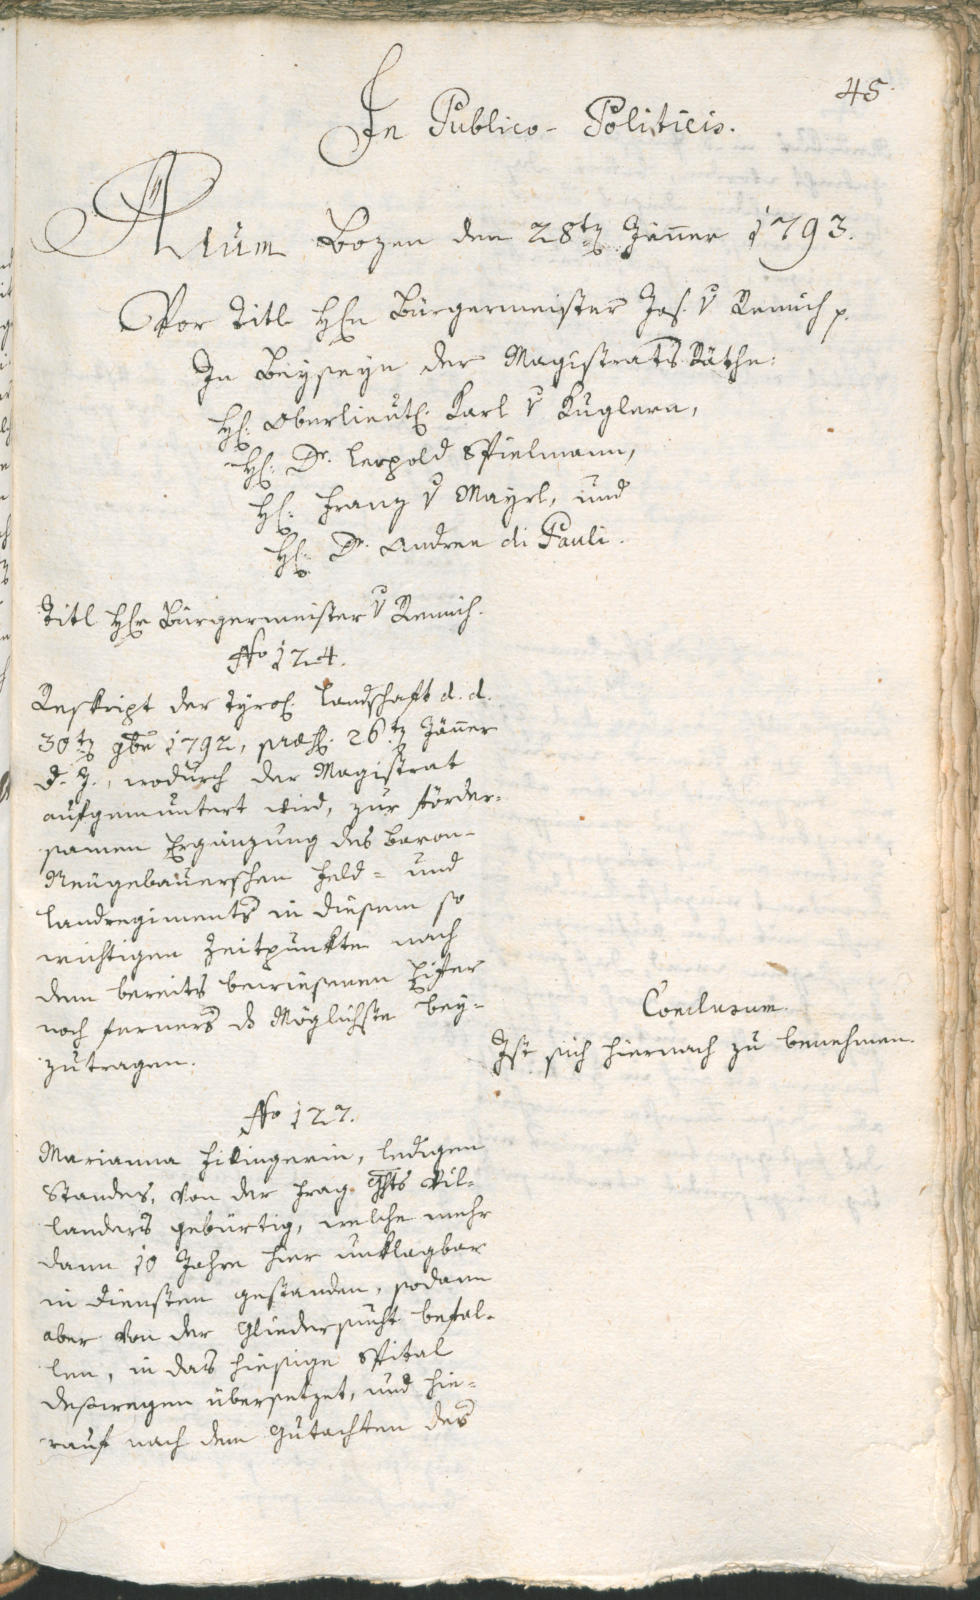 45.
In Publico-Politicis.
Actum Bozen den 28t: Jäner 1793.
Vor Titl H: Bürgermeister Jos. v Remich p.
In Beyseyn der Magistrats Räthe:
H: Oberlieut: Karl v Kuglern,
H: Dr. Leopold Spielmann,
H: Franz v Mayrl, und
H: Dr. Andree di Pauli.
Titl H: Bürgermeister v Remich.
No 124.
Reskript der Tyrol: Landschaft d. d.
30t: 9br 1792, præs: 26t: Jäner
d. J., wodurch der Magistrat
aufgemuntert wird, zur förder-
samen Ergänzung des Baron-
Neugebauerschen Feld- und
Landregiments in diesem so
wichtigen Zeitpunkte nach
dem bereits bewiesenen Eifer
noch ferners ds Möglichste bey-
zutragen.
Conclusum.
Ist sich hiernach zu benehmen.
No 127.
Marianna Hilingerin, ledigen
Standes, von der Frag Ghts Vil-
landers gebürtig, welche mehr
dann 10 Jahre hier unklagbar
in Diensten gestanden, sodann
aber von der Gliedersucht befal-
len, in das hiesige Spital
deßwegen übersetzet, und hie-
rauf nach dem Gutachten des